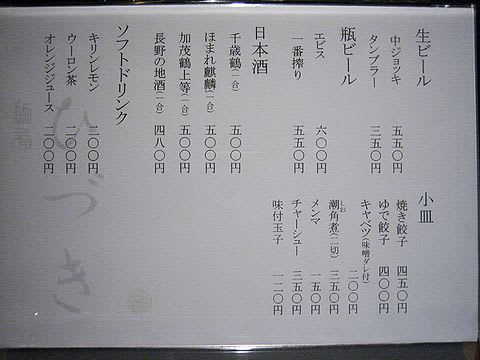 生ビール
中ジョッキ 五五〇円
タンブラー 三五〇円
瓶ビール
エビス 六〇〇円
一番搾り 五五〇円
日本酒
千歳鶴(一合) 五〇〇円
ほまれ麒麟(一合) 五〇〇円
加茂鶴上等(一合) 五〇〇円
長野の地酒(一合) 四八〇円
ソフトドリンク
キリンレモン 二〇〇円
ウーロン茶 二〇〇円
オレンジジュース 二〇〇円
小皿
焼き餃子 四五〇円
ゆで餃子 四〇〇円
キャベツ(味噌ダレ付) 二〇〇円
潮角煮(二切) 三五〇円
しお
メンマ 一五〇円
チャーシュー 三五〇円
味付玉子 一二〇円
ひづき